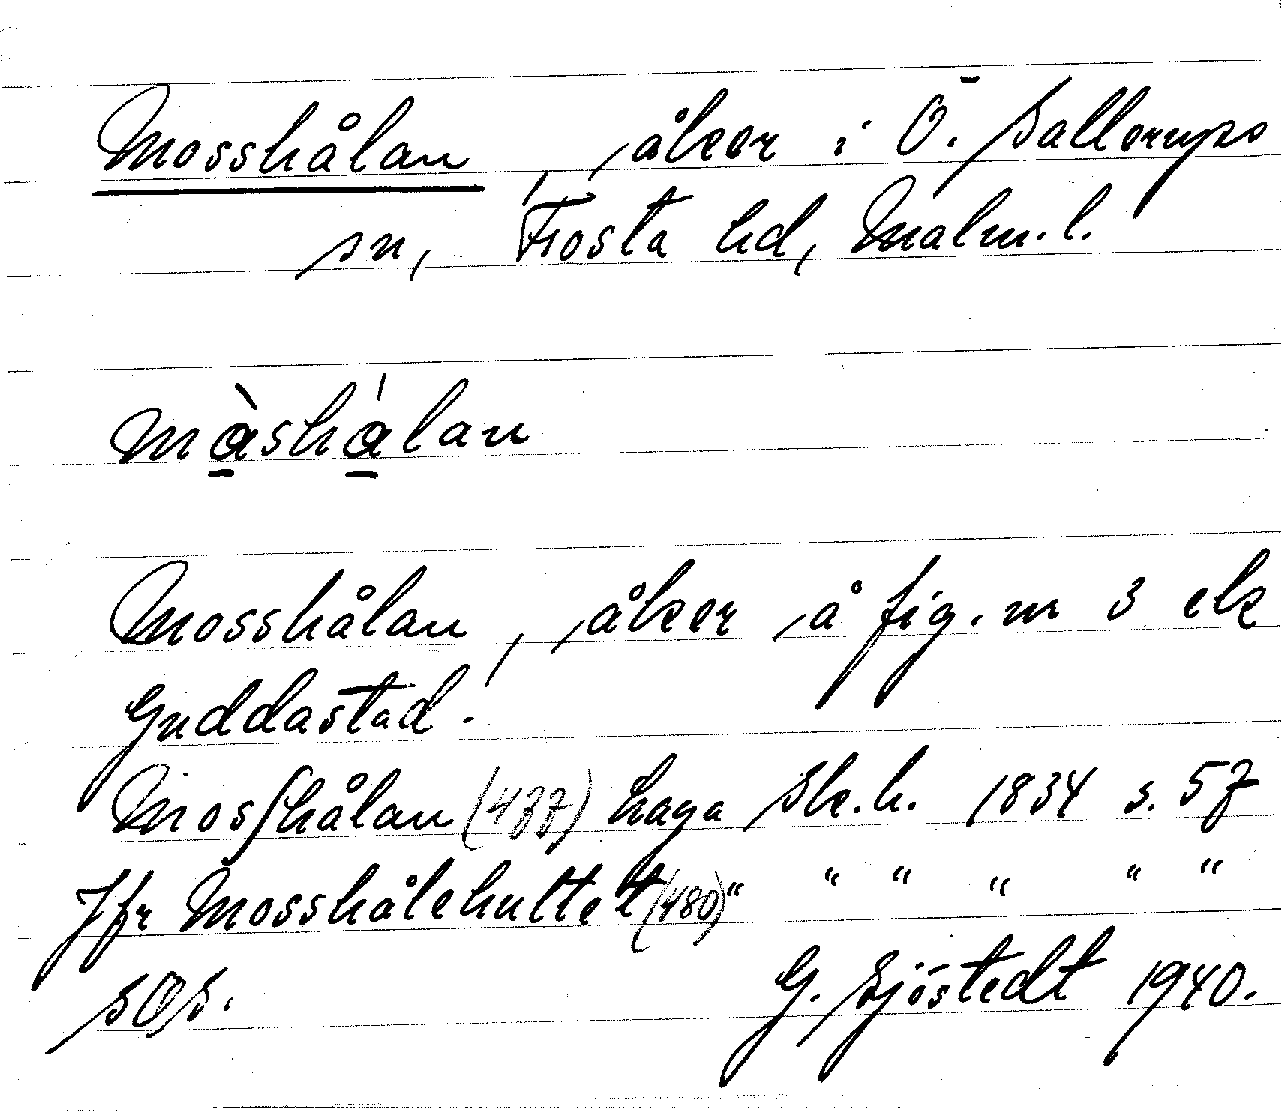 Mosshålan, åker i Ö. Sallerups
sn, Frosta hd, Malm. l.
màshálan
Mosshålan, åker å fig. nr 3 ek
Guddastad.
Mosshålan (477) haga Sk.h. 1834 s. 57
Jfr Mosshålehultet (480) " " " " " "
SOS. G. Sjöstedt 1940.